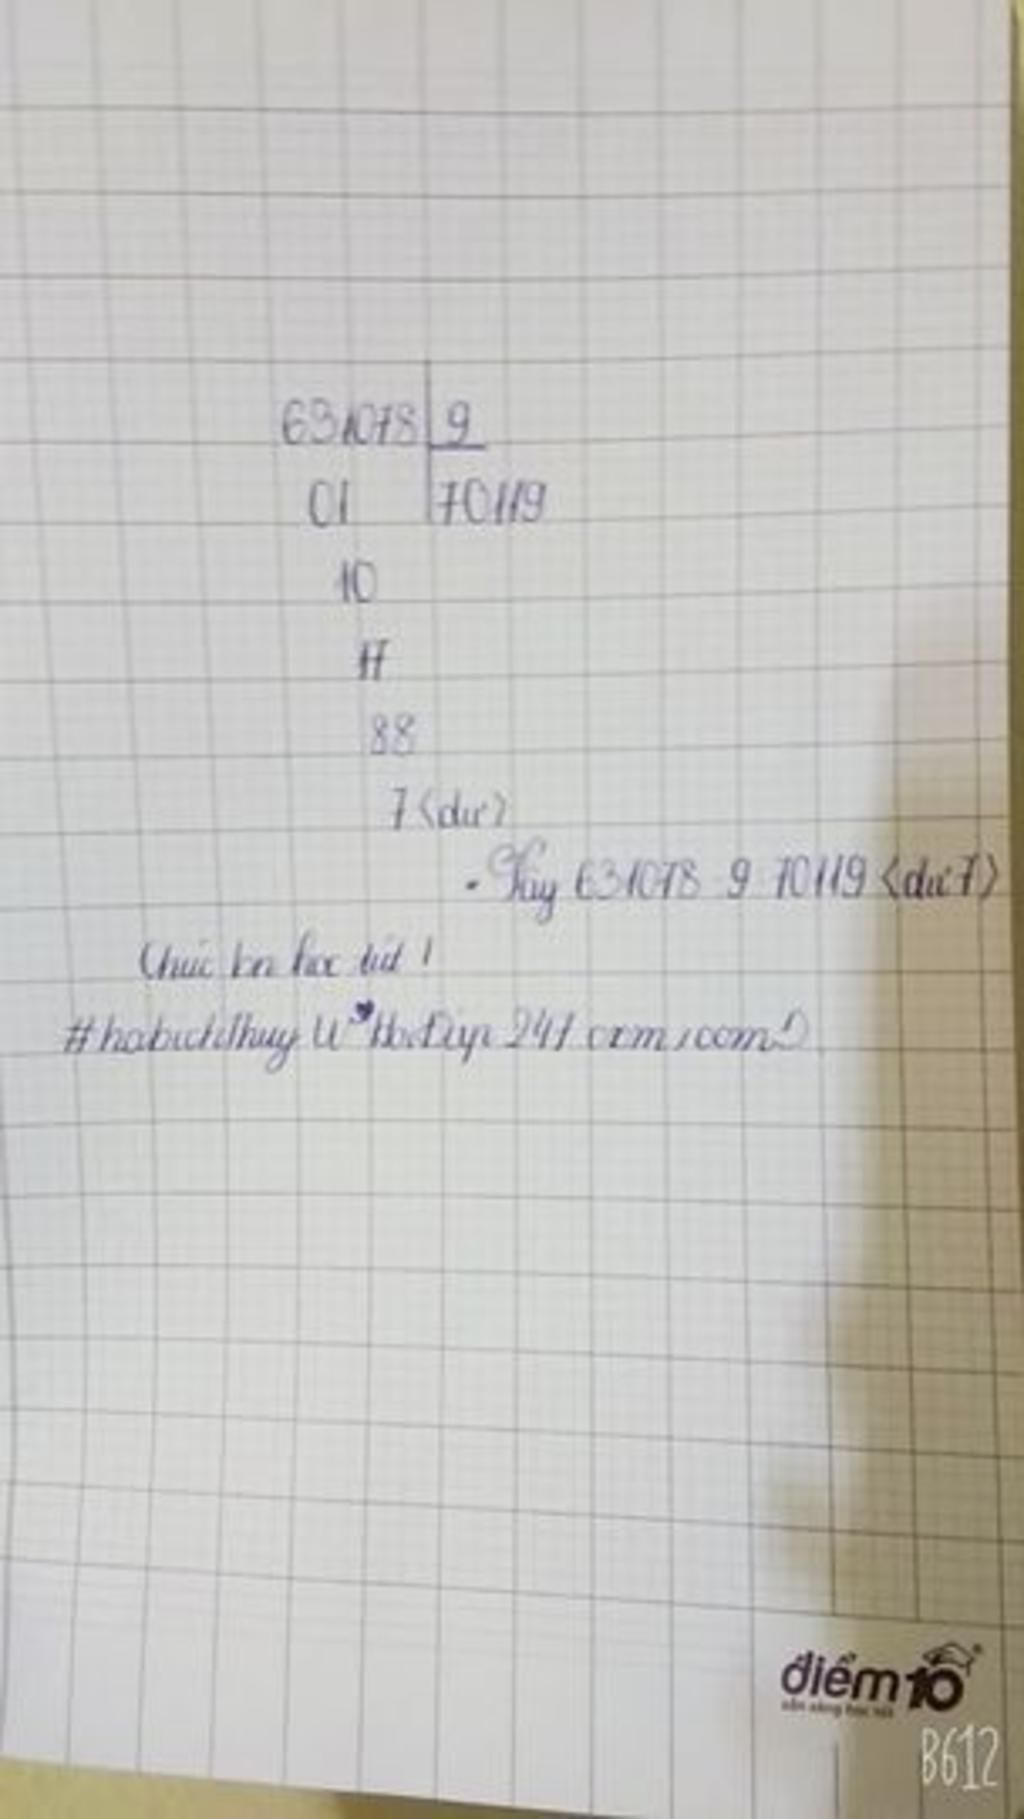 631078 9
01 70119
10
17
88
7 (dư)
Vậy 631078 9 70119 (dư 7)
Chúc bn học tốt !
điểm 10
sẵn sàng học tốt
B612